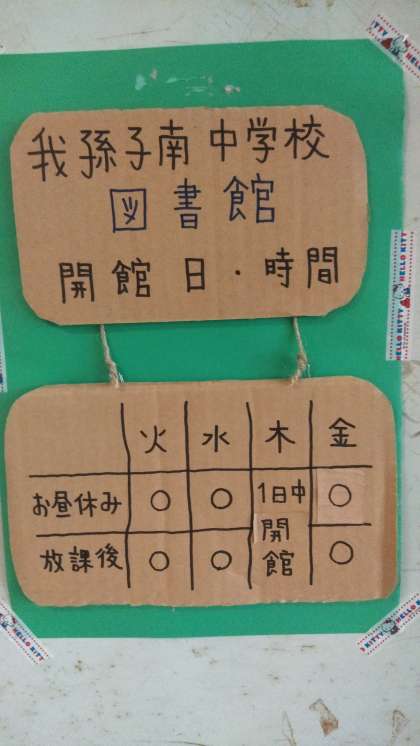 我孫子南中学校
図書館
開館日・時間
火 水 木 金
お昼休み ○ ○ 1日中 ○
開
放課後 ○ ○ 館 ○
HELLO KITTY
HELLO KITTY
HELLO KITTY
HELLO KITTY